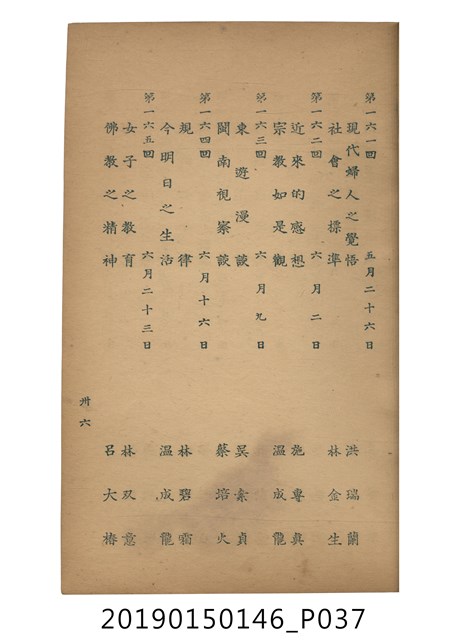 第一六一回　五月二十六日
現代婦人之覺悟　洪瑞蘭
社會之標準　林金生
第一六二回　六月二日
近來的感想　施專真
宗教如是觀　溫成龍
第一六三回　六月九日
東遊漫談　吳素貞
閩南視察談　蔡培火
第一六四回　六月十六日
規律　林碧霜
今明日之生活　溫成龍
第一六五回　六月二十三日
女子之教育　林双意
佛教之精神　呂大椿
卅六
20190150146_P037